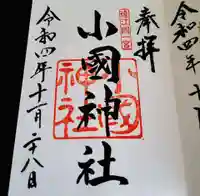 奉拝
遠江國一宮
小國神社
小國神社
令和四年十一月二十八日
令和四年十